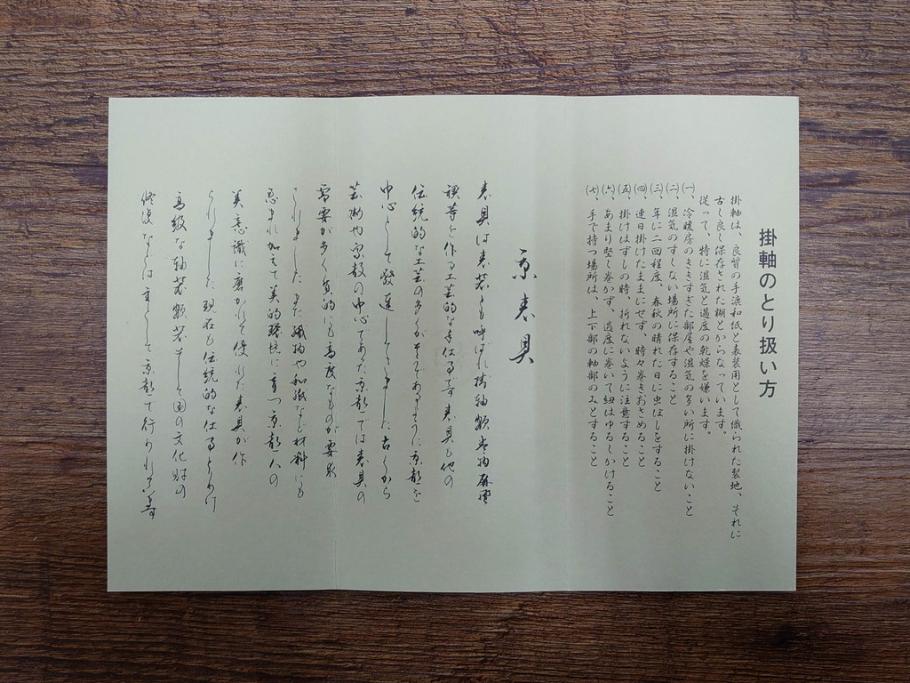 掛軸のとり扱い方
掛軸は、良質の手漉和紙と表装用として織られた裂地、それに
古く良く保存された糊とからなっています。
従って、特に湿気と過度の乾燥を嫌います。
(一)、冷暖房のききすぎた部屋や湿気の多い所に掛けないこと
(二)、湿気のすくない場所に保存すること
(三)、年に二回程度、春秋の晴れた日に虫ぼしをすること
(四)、連日掛けたままにせず、時々巻きおさめること
(五)、掛けはずしの時、折れないように注意すること
(六)、あまり堅く巻かず、適度に巻いて紐はゆるくかけること
(七)、手で持つ場所は、上下部の軸部のみとすること
京表具
表具は表装とも呼ばれ掛軸額巻物屏風
襖等を作る工芸的な仕事です表具も他の
伝統的な工芸の多くがそうであるように京都を
中心として発達してきました古くから
芸術や宗教の中心であった京都では表具の
需要が多く質的にも高度なものが要求
されましたまた織物や和紙など材料にも
恵まれ加えて美的環境に育つ京都人の
美意識に磨かれて優れた表具が作
られました現在も伝統的な仕事をうけ
高級な軸装額装そして国の文化財の
修復などは主として京都で行われます